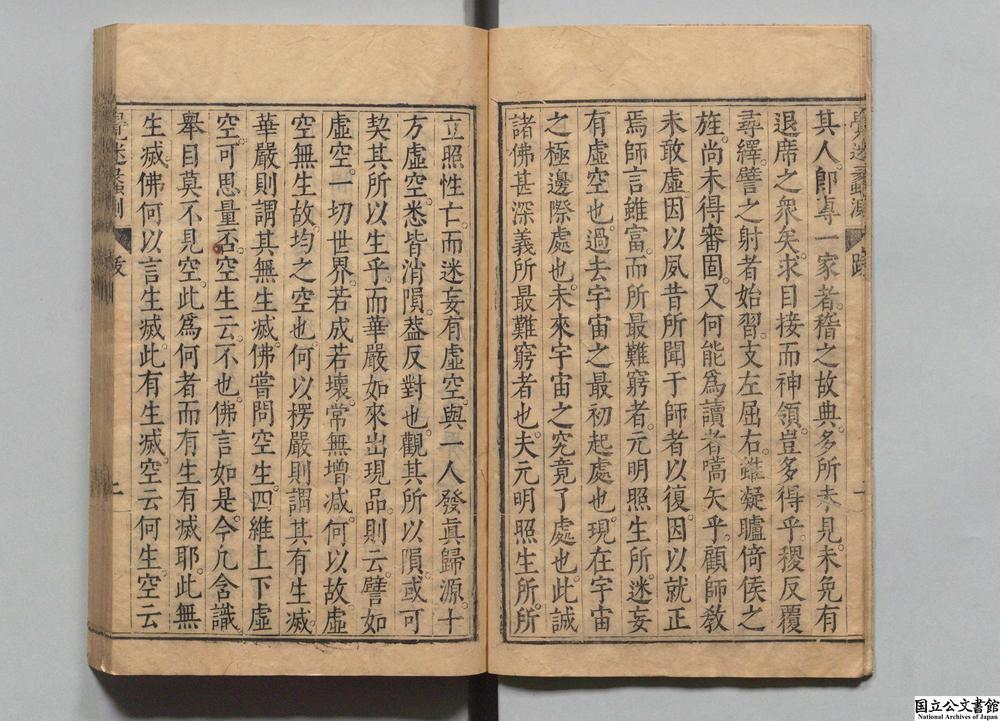 覺迷蠡測
跋
一
其人。卽專一家者。稽之故典。多所未見。未免有
退席之衆矣。求目接而神領。豈多得乎。稷反覆
尋繹。譬之射者始習。支左屈右。雖凝臚倚侯之
旌。尚未得審固。又何能爲讀者嚆矢乎。顧師敎
未敢虛。因以夙昔所聞于師者以復。因以就正
焉。師言雖富。而所最難窮者。元明照生所。迷妄
有虛空也。過去宇宙之最初起處也。現在宇宙
之極邊際處也。未來宇宙之究竟了處也。此誠
諸佛甚深義所最難窮者也。夫元明照生所。所
立照性亡。而迷妄有虛空。與一人發眞歸源。十
方虛空。悉皆消隕。葢反對也。觀其所以隕。或可
契其所以生乎。而華嚴如來出現品。則云。譬如
虛空。一切世界。若成若壞。常無增減。何以故。虛
空無生故。均之空也。何以楞嚴則謂其有生滅。
華嚴則謂其無生滅。佛嘗問空生。四維上下虛
空。可思量否。空生云。不也。佛言如是。今凢含識。
舉目莫不見空。此爲何者而有生有滅耶。此無
生滅。佛何以言生滅。此有生滅。空云何生。空云
覺迷蠡測
跋
二
国立公文書館
National Archives of Japan